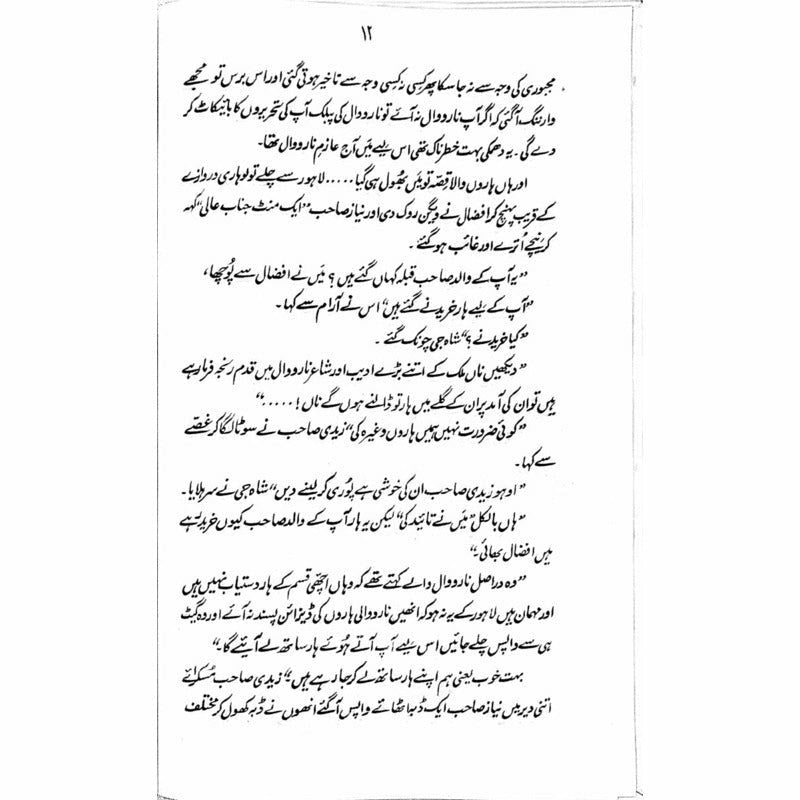 ۱۲
مجبوری کی وجہ سے نہ جا سکا پھر کسی نہ کسی وجہ سے تاخیر ہوتی گئی اور اس برس تو مجھے
وارننگ آ گئی کہ اگر آپ نارووال نہ آئے تو نارووال کی پبلک آپ کی تحریروں کا بائیکاٹ کر
دے گی۔ یہ دھمکی بہت خطرناک تھی اس لیے میں آج عازمِ نارووال تھا۔
اور ہاں ہاروں والا قصّہ تو میں بھُول ہی گیا ..... لاہور سے چلے تو لوہاری دروازے
کے قریب پہنچ کر افضال نے ویگن روک دی اور نیاز صاحب "ایک منٹ جناب عالی" کہہ
کر نیچے اُترے اور غائب ہو گئے۔
"یہ آپ کے والد صاحب قبلہ کہاں گئے ہیں؟ میں نے افضال سے پُوچھا،
"آپ کے لیے ہار خریدنے گئے ہیں" اس نے آرام سے کہا۔
"کیا خریدنے؟" شاہ جی چونک گئے۔
"دیکھیں ناں ملک کے اتنے بڑے ادیب اور شاعر نارووال میں قدم رنجہ فرما رہے
ہیں تو ان کی آمد پر ان کے گلے میں ہار تو ڈالنے ہوں گے ناں! ....."
"کوئی ضرورت نہیں ہمیں ہاروں وغیرہ کی" زیدی صاحب نے سوٹا لگا کر غصّے
سے کہا۔
"اوہو زیدی صاحب ان کی خوشی ہے پُوری کر لینے دیں" شاہ جی نے سر ہلایا۔
"ہاں بالکل" میں نے تائید کی "لیکن یہ ہار آپ کے والد صاحب کیوں خرید رہے
ہیں افضال بھائی۔"
"وہ دراصل نارووال والے کہتے تھے کہ وہاں اچھّی قسم کے ہار دستیاب نہیں ہیں
اور مہمان ہیں لاہور کے یہ نہ ہو کہ انھیں نارووالی ہاروں کی ڈیزائن پسند نہ آئے اور وہ گیٹ
ہی سے واپس چلے جائیں اس لیے آپ آتے ہُوئے ہار ساتھ لے آئیے گا۔"
بہت خوب یعنی ہم اپنے ہار ساتھ لے کر جا رہے ہیں؛" زیدی صاحب مُسکرائے
اتنی دیر میں نیاز صاحب ایک ڈبہ اٹھائے واپس آ گئے انھوں نے ڈبہ کھول کر مختلف